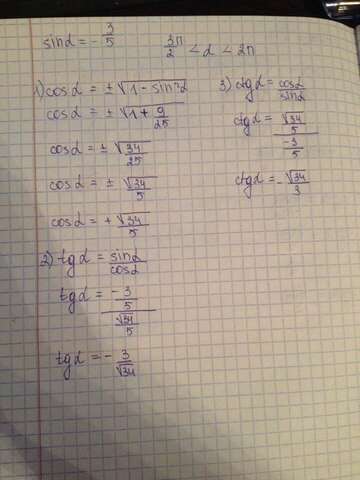 sinα = - 3/5    3π/2 < α < 2π
1) cosα = ± √1 - sin²α
cosα = ± √1 + 9/25
cosα = ± √34/25
cosα = ± √34/5
cosα = + √34/5
2) tgα = sinα/cosα
tgα = -3/5 / √34/5
tgα = - 3/√34
3) ctgα = cosα/sinα
ctgα = √34/5 / -3/5
ctgα = - √34/3